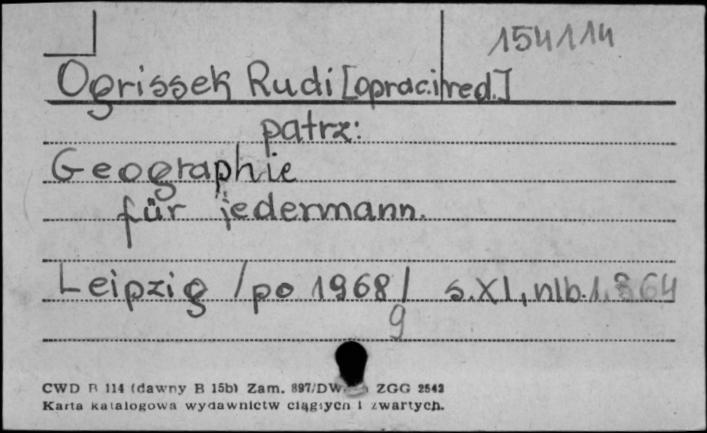 154114
Ogrissek Rudi [oprac. i red.]
patrz:
Geographie
für jedermann.
Leipzig /po 1968/ s. XI, nlb. 1. 364
9
CWD B 114 (dawny B 15b) Zam. 897/DW ZGG 2542
Karta katalogowa wydawnictw ciągłych i zwartych.